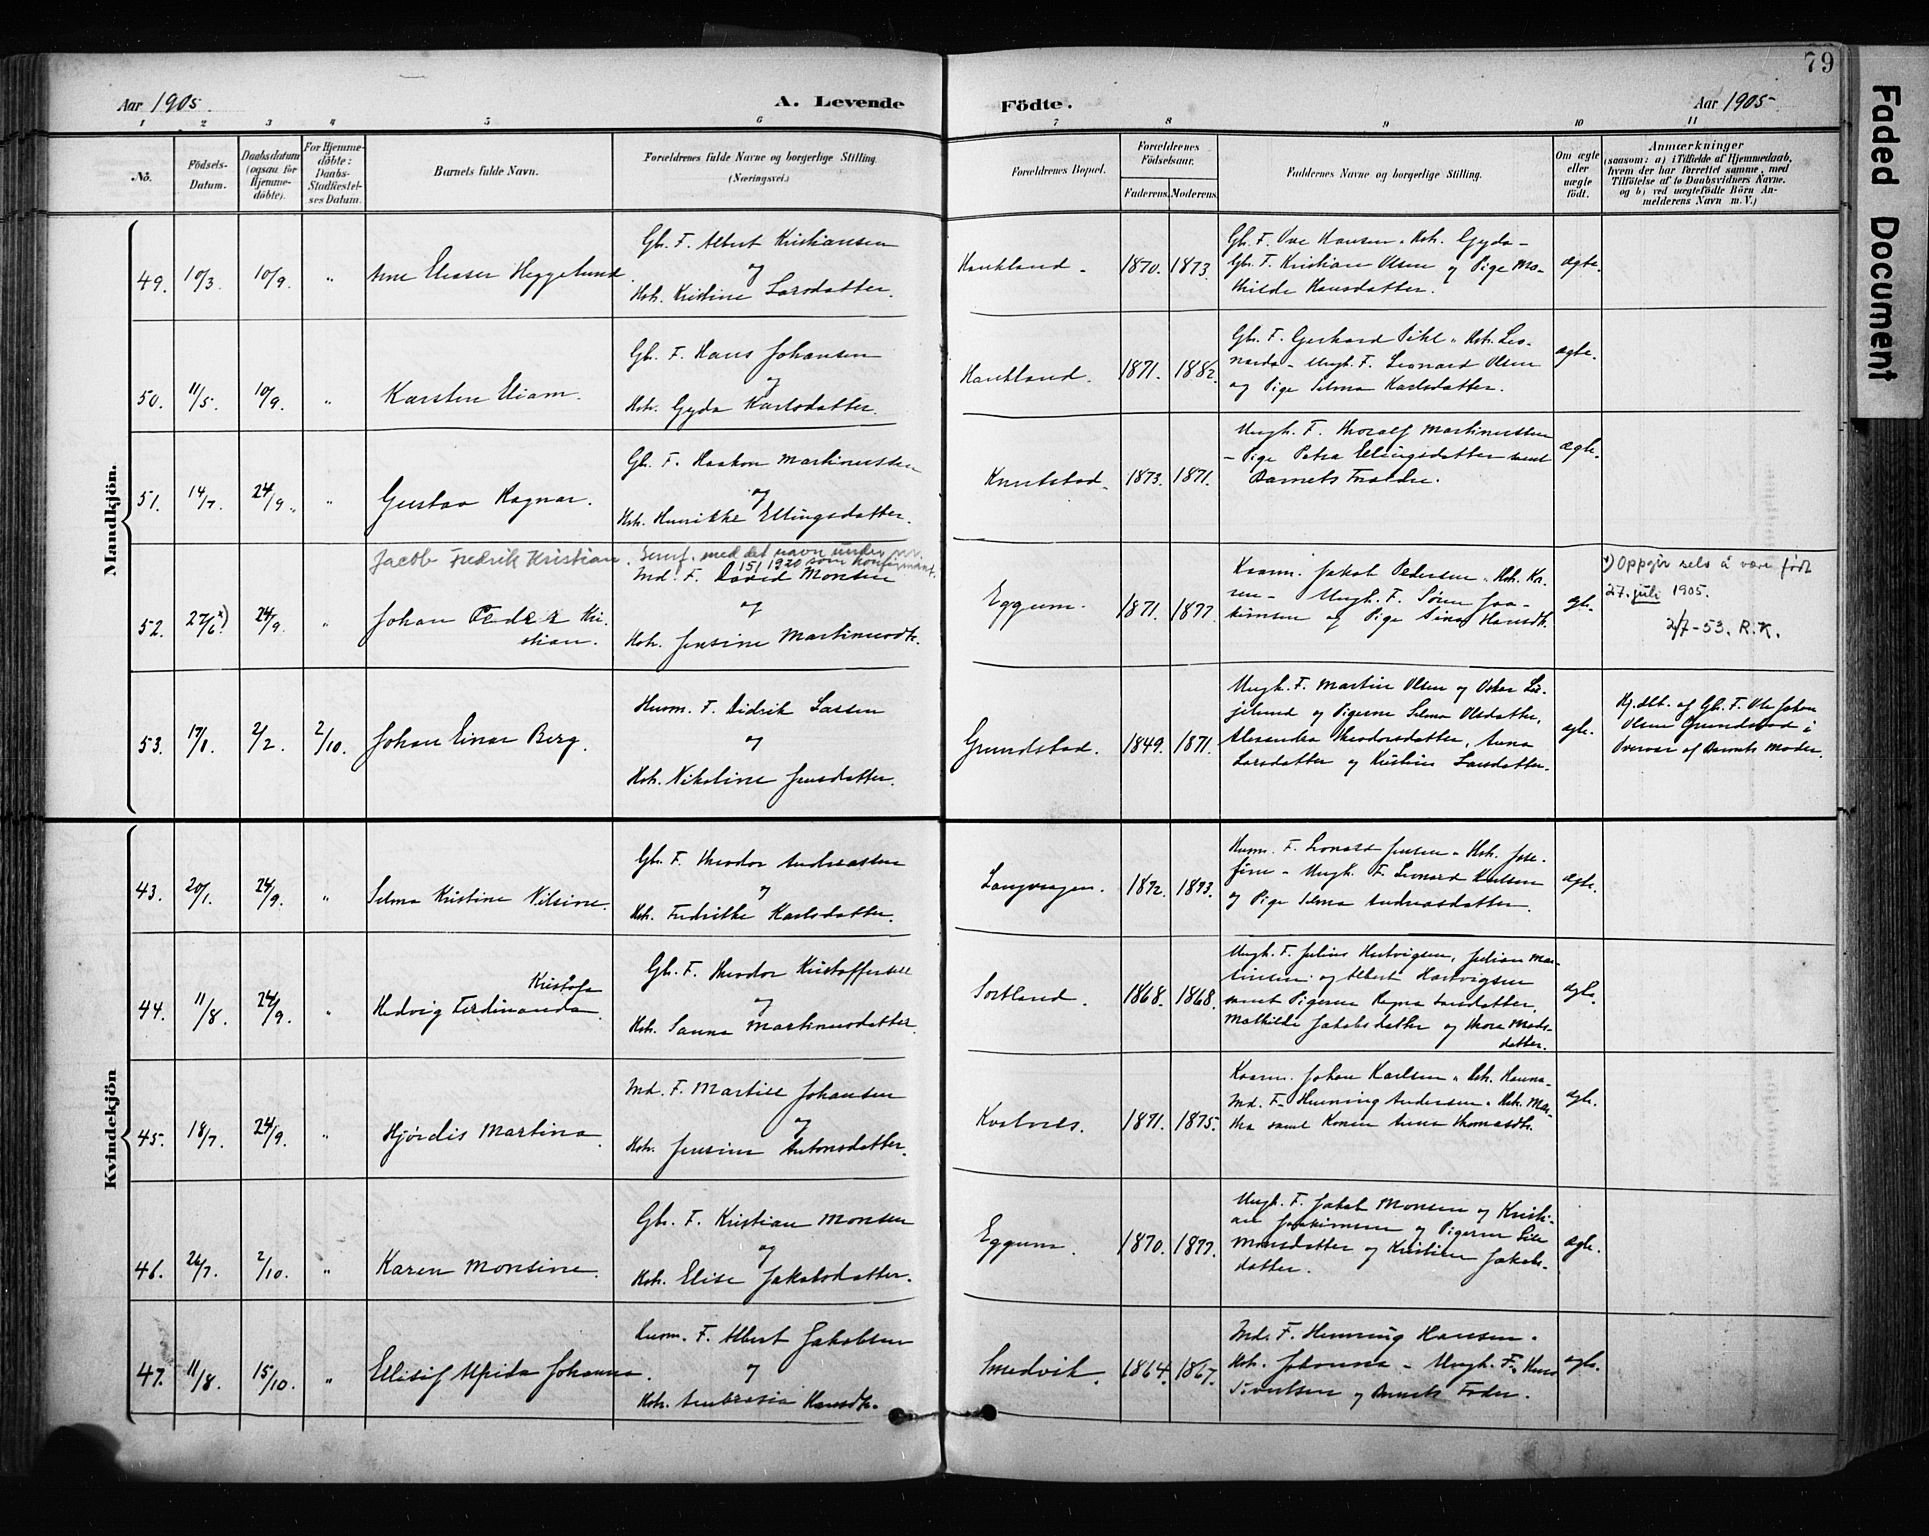 79
Faded Document
Aar 1905.
A. Levende
Födte.
Aar 1905
1 2 3 4 5 6 7 8 9 10 11
No.
Födsels-
Datum.
Daabsdatum
(ogsaa for
Hjemme-
döbte).
For Hjemme-
döbte:
Daabs-
Stadfæstel-
ses Datum.
Barnets fulde Navn.
Forældrenes fulde Navne og borgerlige Stilling.
(Næringsvei.)
Forældrenes Bopæl.
Forældrenes
Födselsaar.
Faderens. Moderens.
Faddernes Navne og borgerlige Stilling.
Om ægte
eller
uægte
født.
Anmærkninger
(saasom: a) i Tilfælde af Hjemmedaab,
hvem der har forrettet samme, med
Tilföielse af to Daabsvidners Navne,
og b) ved uægtefödte Börn An-
melderens Navn m. V.)
Mandkjön.
49. 10/3. 10/9. "
Heggelund
Gb. F. Albert Kristiansen
og
Hst. Kristine Larsdatter.
Haukland.
1870. 1873.
Gb. F. Ove Hansen. Hst. Gyda -
Gb. F. Kristian Olsen og Pige Ma-
thilde Hansdatter.
ægte.
50. 11/5. 10/9. "
Karsten Eliam.
Gb. F. Hans Johansen
og
Hst. Gyda Karlsdatter.
Haukland.
1871. 1882.
Gb. F. Gerhard Pihl. Hst. Leo-
narda - Ungk. F. Leonard Olsen
og Pige Selma Karlsdatter.
ægte.
51. 14/7. 24/9. "
Gustav Ragnar.
Gb. F. Haakon Martinussen
og
Hst. Henrikke Ellingsdatter.
Knutstad.
1873. 1871.
Ungk. F. Thoralf Martinussen
- Pige Petra Ellingsdatter samt
Barnets Forældre.
ægte.
Jacob Fredrik Kristian. med det navn under nr.
151 1920 som konfirmant.
52. 27/6 x) 24/9. "
Johan Peder Kri-
stian.
Ind. F. David Monsen
og
Hst. Jensine Martinusdtr.
Eggum.
1871. 1877
Kaarm. Jakob Pedersen. Hst. Ka-
ren - Ungk. F. Sören Joa-
kimsen og Pige Sina Hansdtr.
ægte.
x) Oppgir selv å være født
27. juli 1905.
2/7-53. R.K.
53. 17/1. 2/2. 2/10.
Johan Einar Berg.
Husm. F. Didrik Larsen
og
Hst. Nikoline Jensdatter.
Grundstad.
1849. 1871.
Ungk. F. Martin Olsen og Oskar Lil-
jelund og Pigerne Selma Olsdatter,
Alexandra Theodorsdatter, Anna
Larsdatter og Kristine Larsdatter.
ægte.
Hj.dbt. af Gb. F. Ole Johan
Olsen Grundstad i
Overvær af Barnets Moder.
Kvindekjön
43. 20/1. 24/9. "
Selma Kristine Nilsine.
Gb. F. Theodor Andreassen
og
Hst. Fredrikke Karlsdatter.
Langvaagen.
1872. 1873.
Husm. F. Leonard Jensen. Hst. Jose-
fine - Ungk. F. Leonard Karlsen
og Pige Selma Andreasdatter.
ægte.
44. 11/8. 24/9. "
Kristofa
Hedvig Ferdinanda.
Gb. F. Theodor Kristoffersen
og
Hst. Sanna Martinusdatter.
Sortland.
1868. 1868.
Ungk. F. Julius Hartvigsen, Julian Mar-
tinsen og Albert Hartvigsen
samt Pigerne Ragna Larsdatter,
Mathilde Jakobsdatter og Thora Mads-
datter.
ægte.
45. 18/7. 24/9. "
Hjørdis Martina.
Ind. F. Martin Johansen
og
Hst. Jensine Antonsdatter.
Kvalnes.
1871. 1875.
Kaarm. Johan Karlsen. Hst. Hanna.
Ind. F. Henning Andersen. Hst. Mar-
tha samt Konen Anna Thomasdtr.
ægte.
46. 26/7. 2/10. "
Karen Monsine.
Gb. F. Kristian Monsen
og
Hst. Elise Jakobsdatter.
Eggum.
1870. 1877.
Ungk. F. Jakob Monsen og Kristi-
an Joakimsen og Pigerne Sile
Monsdatter og Kristine Jakobs-
datter.
ægte.
47. 11/8. 15/10. "
Ellisif Alfida Johanna.
Husm. F. Albert Jakobsen
og
Hst. Ambrosia Hansdtr.
Smedvik.
1864. 1867.
Ind. F. Henning Hansen.
Hst. Johanna - Ungk. F. Hans
Sivertsen og Barnets Fader.
ægte.